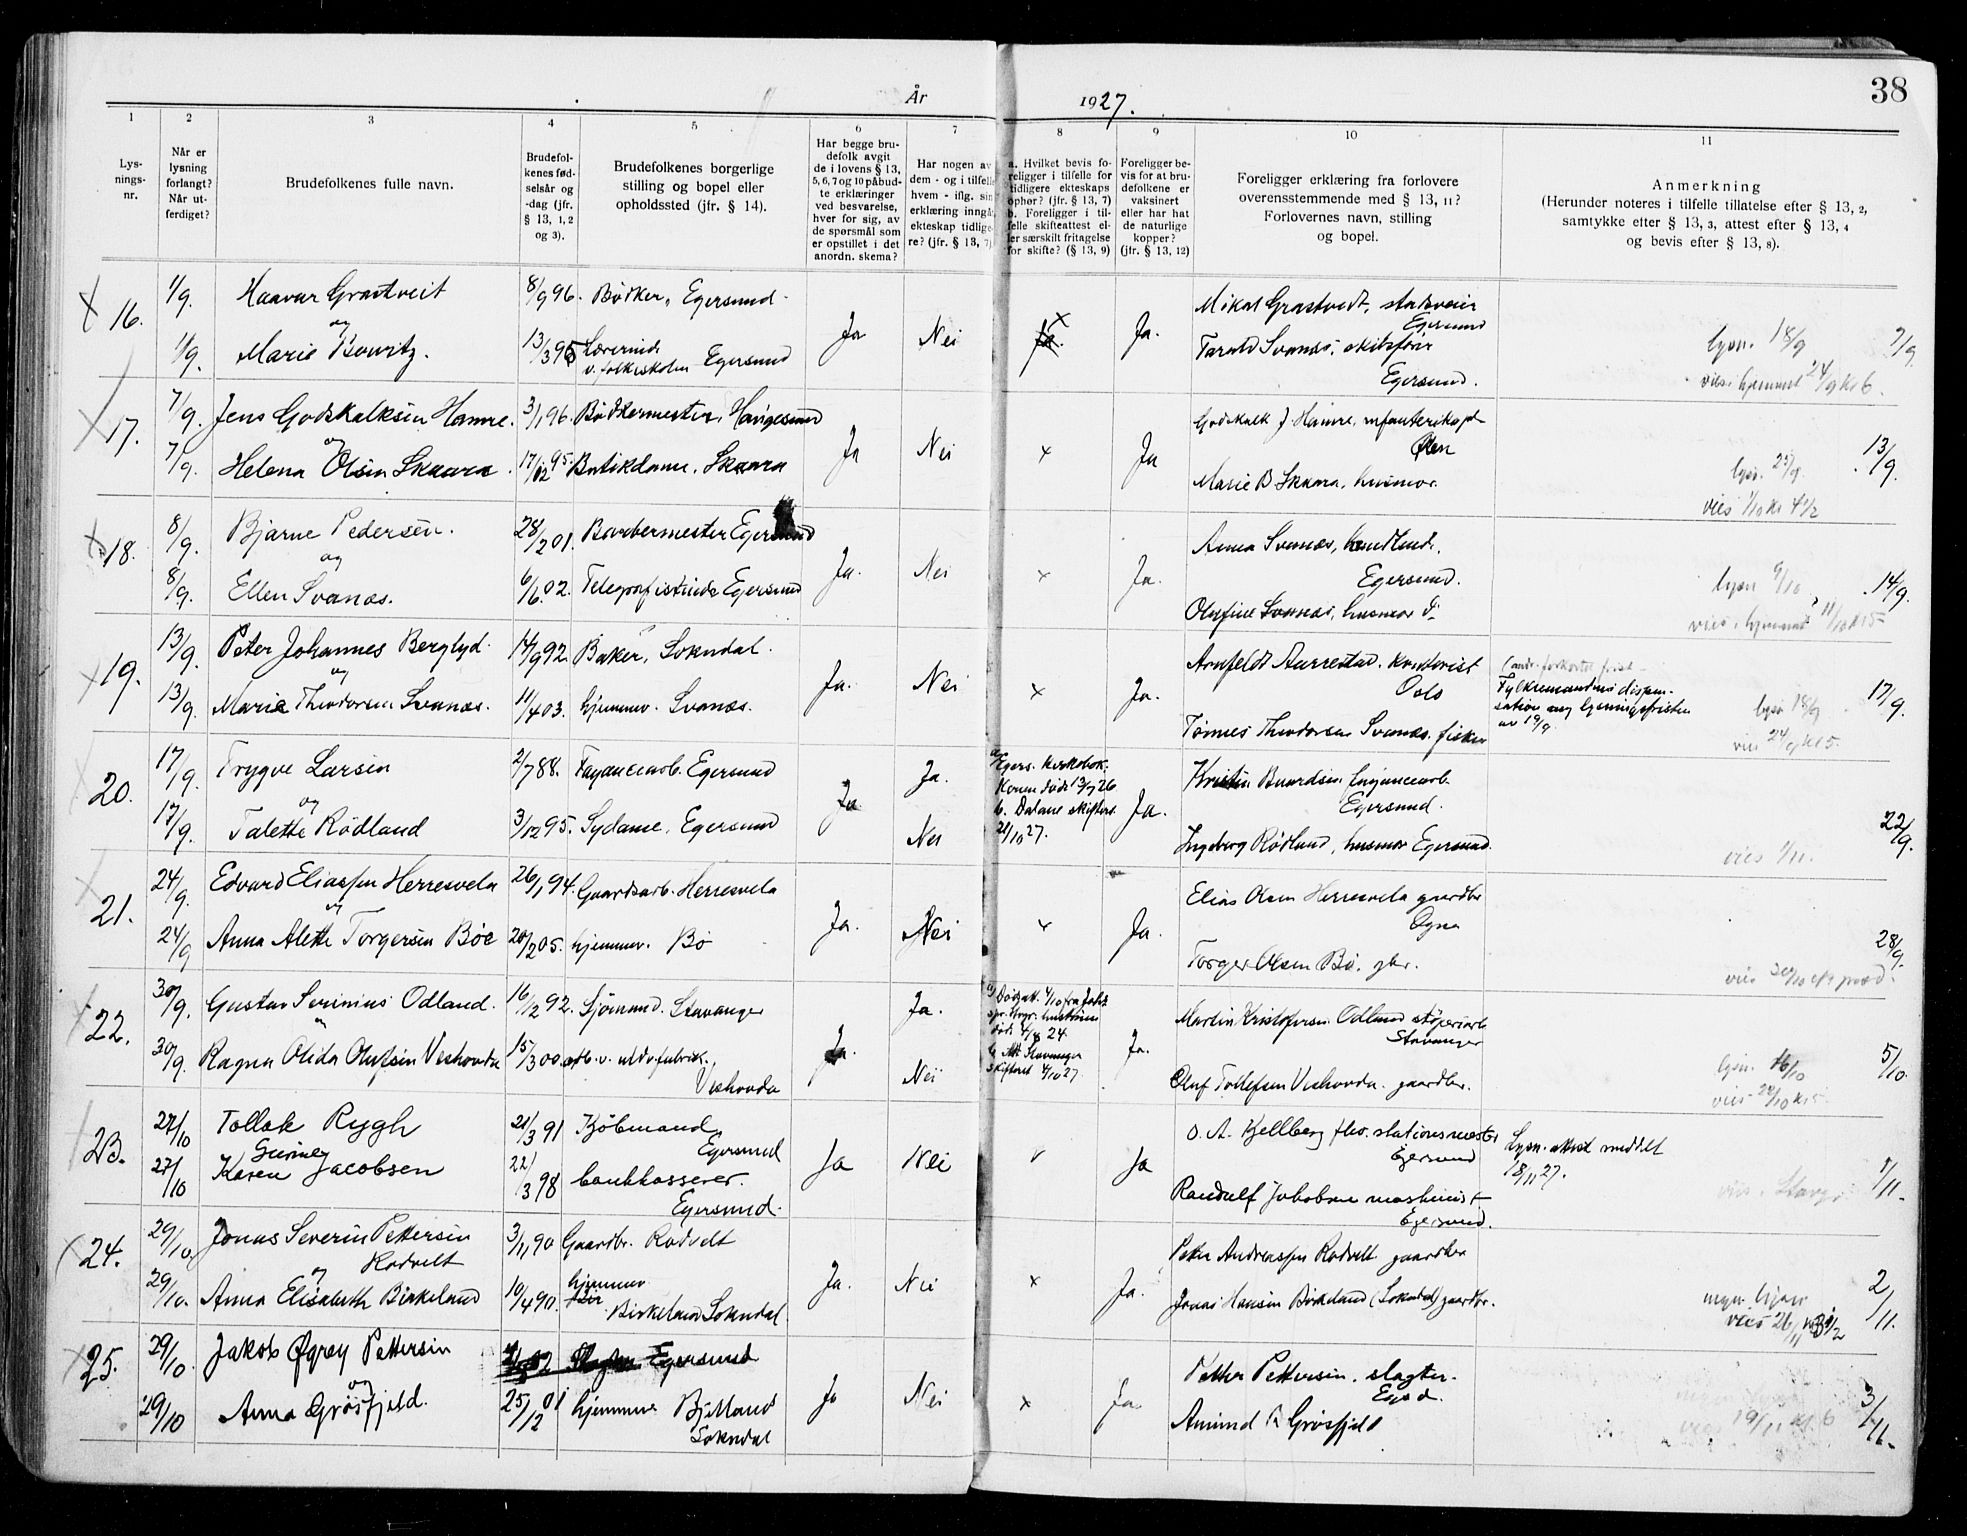 År 1927.
38
1 2 3 4 5 6 7 8 9 10 11
Lysnings-nr.
Når er lysning forlangt? Når utferdiget?
Brudefolkenes fulle navn.
Brudefolkenes fødselsår og -dag (jfr. § 13, 1, 2 og 3).
Brudefolkenes borgerlige stilling og bopel eller opholdssted (jfr. § 14).
Har begge brudefolk avgit de i lovens § 13, 5, 6, 7 og 10 påbudte erklæringer ved besvarelse, hver for sig, av de spørsmål som er opstillet i det anordn. skema?
Har nogen av dem - og i tilfelle hvem - iflg. sin erklæring inngå ekteskap tidligere? (jfr. § 13, 7)
a. Hvilket bevis foreligger i tilfelle for tidligere ekteskaps ophør? (jfr. § 13, 7) b. Foreligger i tilfelle skifteattest eller særskilt fritagelse for skifte? (§ 13, 9)
Foreligger bevis for at brudefolkene er vaksinert eller har hat de naturlige kopper? (jfr. § 13, 12)
Foreligger erklæring fra forlovere overensstemmende med § 13, 11? Forlovernes navn, stilling og bopel.
Anmerkning (Herunder noteres i tilfelle tillatelse efter § 13, 2, samtykke efter § 13, 3, attest efter § 13, 4 og bevis efter § 13, 8).
x 16. 1/9. Haavar Grastveit 8/9 96. Bødker, Egersund. Ja Nei Ja. Mikal Grastvedt,
Egersund
og
1/9. Marie 13/3 95 Lærerinde v. folkeskolen Egersund Svanes, skibsfører
Egersund.
lysn. 18/9 7/9.
vies i hjemmet 24/9 kl 6.
x 17. 7/9. Jens Godskalksen Hamre. 3/1 96. Bødkermester, Haugesund Ja Nei x Ja Godskalk J. Hamre,
Ølen
og
7/9. Helena Olsen Skaara. 17/12 95. Butikdame, Skaara Marie B Skaara, husmor.
lysn. 25/9. 13/9.
vies 1/10 kl 4 1/2
x 18. 8/9. Bjarne Pedersen. 28/2 01. Barbermester Egersund Ja. Nei x Ja. Anna Svanes, handlende.
Egersund.
og
8/9. Ellen Svanes. 6/6 02. Telegrafistinde Egersund Olufine Svanes, husmor
lysn 9/10 14/9.
vies i hjemmet 11/10 kl 5
x 19. 13/9. Peter Johannes Berglyd. 14/9 92. Baker, Sokndal. Ja. Nei x Ja. Arnfeldt Aurrestad. kontorist
Oslo
og
13/9. Marie Theodorsen Svanes. 11/4 03. hjemmev. Svanes. Tønnes Theodorsen Svanes. fisker
Fylkesmandens dispensation
lysningsfristen
av 19/9.
lysn 18/9 17/9.
vies 24/9 kl 5.
20. 17/9. Trygve Larsen 2/7 88. Fayancearb. Egersund Ja Ja. a. Egers. kirkebok.
Konen død 26
b. Dalane skifter.
21/10 27.
Ja. Buardsen fayancearb.
Egersund.
og
17/9. Talette Rødland 3/12 95. Sydame, Egersund Nei Ingeborg Rødland, husmor Egersund.
vies 1/11. 22/9.
21. 24/9. Edvard Eliassen Herresvela 26/1 94. Gaardsarb. Herresvela Ja. Nei x Ja. Elias Olsen Herresvela gaardbr
Ogna
og
24/9 Anna Alette Torgersen Bøe 20/2 05. hjemmev. Bø Torger Olsen Bø. gbr.
vies 30/10 28/9.
22. 30/9. Gustav Serinius Odland. 16/12 92. Sjømand. Stavanger Ja. Ja. a) Dødsatt. 4/10 fra
hustruen
død 24.
b. Att. Stavanger
skifteret 4/10 27.
Ja. Martin Kristofersen Odland støperiarb
Stavanger
og
30/9. Ragna Olida Olufsen Veshovda 15/3 00. arb. v. uldv.fabrik.,
Veshovda
Nei Oluf Tollefsen Veshovda. gaardbr.
lysn. 16/10 5/10.
vies 29/10 kl 5
23. 27/10 Tollak Rygh 21/3 91 Kjøbmand
Egersund
Ja Nei v Ja O. A. Kjellberg fhv. stationsmester
Egersund
27/10 Karen Jacobsen 22/3 98 bankkasserer.
Egersund.
Randulf Jakobsen maskinist
Egersund.
Lysn. attest meddelt
18/11 27.
vies i Stavgr. 1/11.
24. 29/10. Jonas Severin Pettersen
Rodvelt
3/11 90 Gaardbr. Rodvelt Ja. Nei x Ja. Peter Andreassen Rodvelt gaardbr
og
29/10. Anna Elisabeth Birkeland 10/4 90. hjemmev.
Birkeland Sokndal.
Jonas Hansen Birkeland (Sokndal) gaardbr.
vies 26/11 2/11.
25. 29/10. Jakob Øgrey Pettersen Egersund Ja Nei x Ja. Petter Pettersen. slagter.
Egsd.
og
29/10 Anna Grøsfjeld. 25/12 01 hjemmev Bjelland
Sokndal
Amund R Grøsfjeld
vies 19/11 kl. 6 3/11.